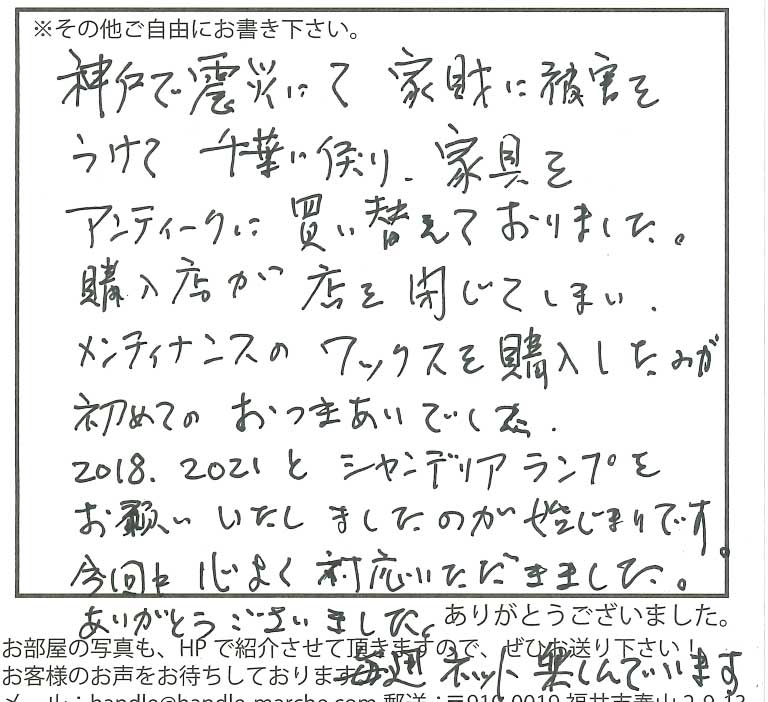 ※その他ご自由にお書き下さい。
神戸で震災にて 家財に被害を
うけて 千葉に移り、家具を
アンティークに 買い替えておりました。
購入店が 店を閉じてしまい、
メンティナンスの ワックスを購入したのが
初めての おつきあいでした。
2018、2021と シャンデリア ランプを
お願い いたし ましたのが 始じまりです。
今回も 心よく 対応いただきました。
ありがとうございました。
ありがとうございました。
お部屋の写真も、HPで紹介させて頂きますので、ぜひお送り下さい!
お客様のお声をお待ちしております
毎週 ネット 楽しんでいます
メール:handle@handle-marche.com 郵送:〒910-0019 福井市春山 2-9-13